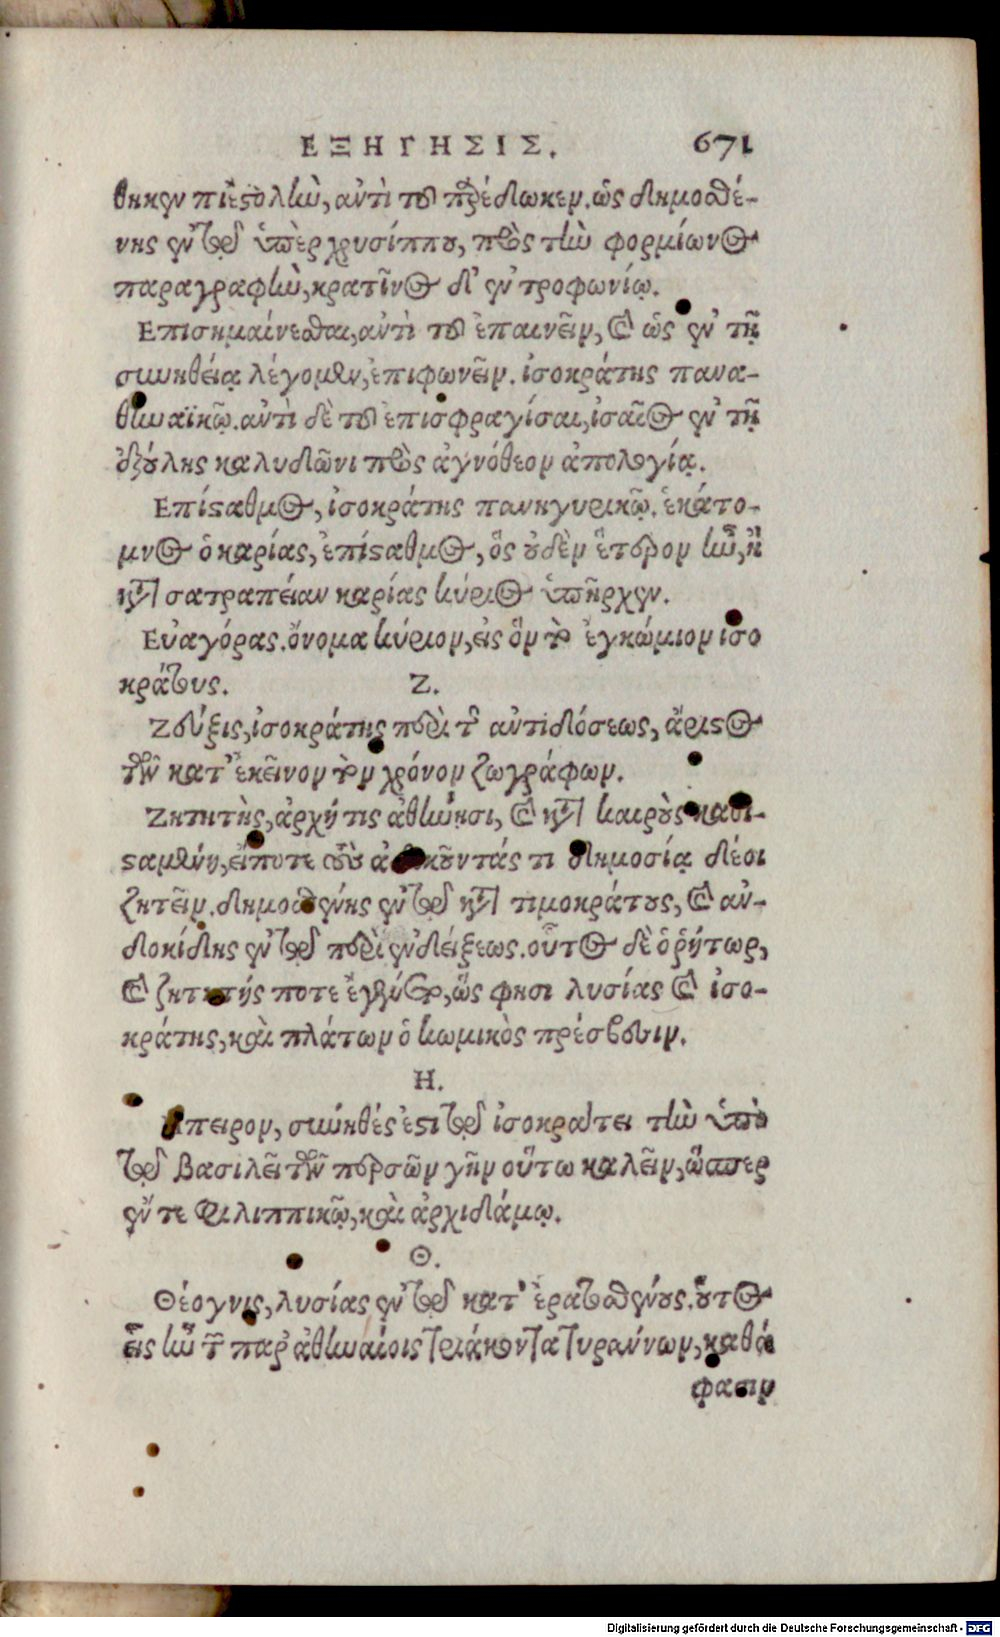 ΕΞΗΓΗΣΙΣ. 671
θηκεν πιστολὴν, αὐτὶ τοῦ προέδωκεν. ὡς δημοσθέ-
νης ἐν τῷ ὑπὲρ χρυσίππου, πρὸς τὴν φορμίωνος
παραγραφὴν, κρατῖνος δ' ἐν τροφωνίῳ.
Επισημαίνεσθαι, αὐτὶ τοῦ ἐπαινεῖν, καὶ ὡς ἐν τῇ
συνηθείᾳ λέγομεν, ἐπιφωνεῖν. ἰσοκράτης πανα-
θηναϊκῷ. αὐτὶ δὲ τοῦ ἐπισφραγίσαι, ἰσαῖος ἐν τῇ
ἐξούλης καλυδῶνι πρὸς ἁγνόθεον ἀπολογίᾳ.
Επίσταθμος, ἰσοκράτης πανηγυρικῷ. ἑκάτο-
μνος ὁ καρίας, ἐπίσταθμος, ὃς οὐδὲν ἕτερον ἦν, ἢ
κατὰ σατραπείαν καρίας κύριος ὑπῆρχεν.
Εὐαγόρας. ὄνομα κύριον, εἰς ὃν τὸ ἐγκώμιον ἰσο
κράτους. Ζ.
Ζεύξις, ἰσοκράτης περὶ τῆς αὐτιδόσεως, ἄριστος
τῶν κατ' ἐκεῖνον τὸν χρόνον ζωγράφων.
Ζητητὴς, ἀρχή τις ἀθήνησι, καὶ κατὰ καιρὸς καθι-
σταμένη, εἴποτε τοὺς ἀδικοῦντάς τι δημοσίᾳ δέοι
ζητεῖν. δημοσθένης ἐν τῷ κατὰ τιμοκράτους, καὶ αν-
δοκίδης ἐν τῷ περὶ ἐνδείξεως. οὗτος δὲ ὁ ῥήτωρ,
καὶ ζητητής ποτε ἐγένετο, ὥς φησι λυσίας καὶ ἰσο-
κράτης, καὶ πλάτων ὁ κωμικὸς πρέσβεσιν.
Η.
Ηπειρον, σύνηθές ἐστι τῷ ἰσοκράτει τὴν ὑπὸ
τῷ βασιλεῖ τῶν περσῶν γῆν οὕτω καλεῖν, ὥσπερ
ἔν τε Φιλιππικῷ, καὶ ἀρχιδάμῳ.
Θ.
Θέογνις, λυσίας ἐν τῷ κατ' ἐρατοσθένους. οὗτος
εἷς ἦν τῶν παρ' ἀθηναίοις τριάκοντα τυράννων, καθά
φασιν
Digitalisierung gefördert durch die Deutsche Forschungsgemeinschaft - DFG